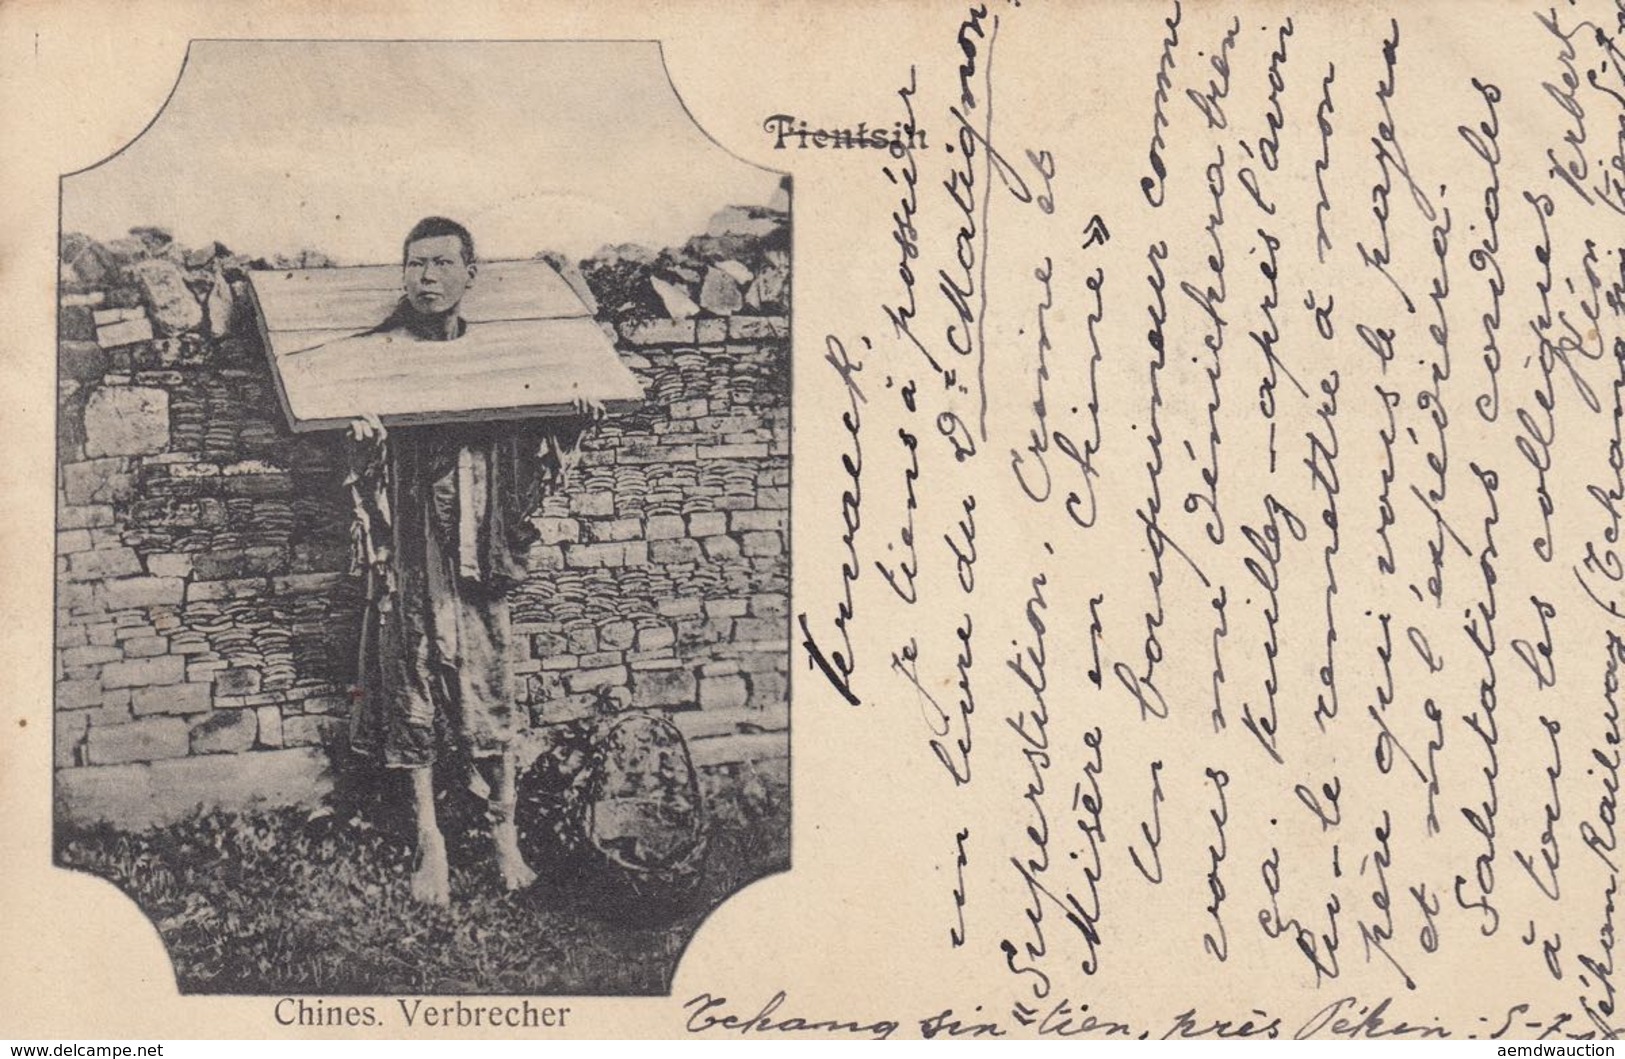 Tientsin
Chines. Verbrecher
Vervaeck,
Je tiens à posséder
un livre du Dr Matignon:
"Superstition, Crime et
Misère en Chine"
Un bouquineur comme
vous me dénichera bien
ça. Veuillez-après l'avoir
lu-le remettre à mon
père qui vous le payera
et me l'expédiera.
Salutations cordiales
à tous les collègues
Léon Verbert.
Tchang sin tien, près Pékin: 5-7-
delcampe.net
aemdwauction